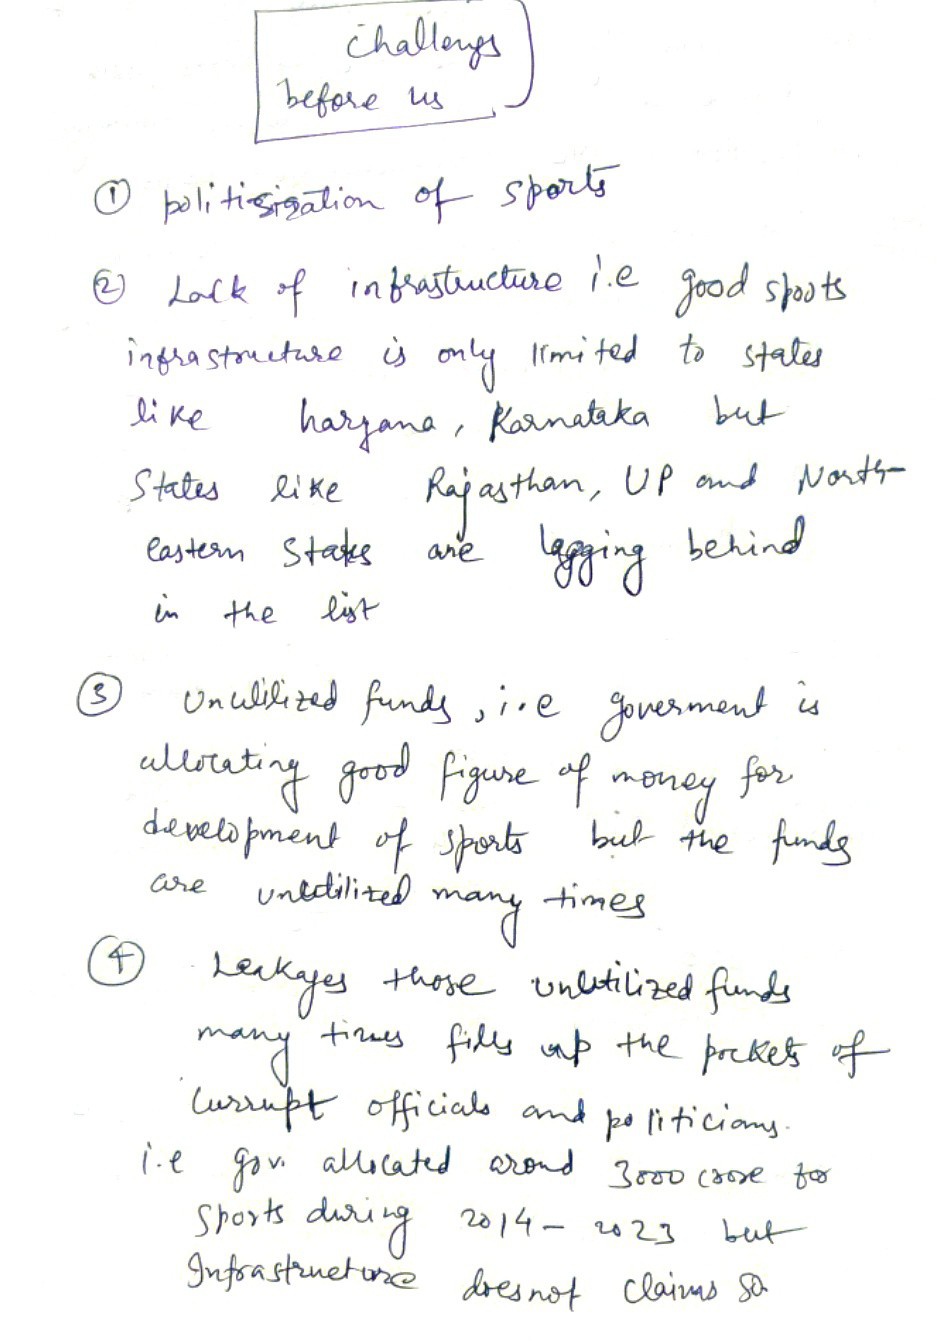 challengs
before us
① politisization of sports
② Lack of infrastructure i.e good sports
infrastructure is only limited to states
like haryana, Karnataka but
States like Rajasthan, UP and North-
eastern States are lagging behind
in the list
③ Unutilized funds, i.e goverment is
allocating good figure of money for
development of sports but the funds
are unutilized many times
④ Leakages those unutilized funds
many times fills up the pockets of
currupt officials and politicians.
i.e gov. allocated arond 3000 crore for
sports during 2014-2023 but
Infrastructure does not claims so